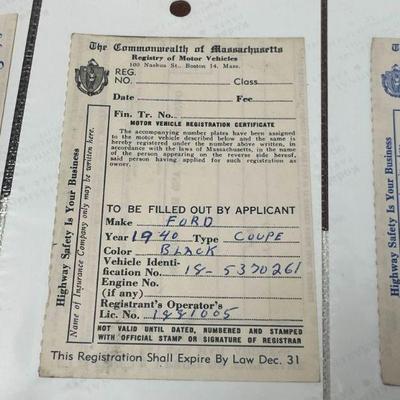 The Commonwealth of Massachusetts
Registry of Motor Vehicles
100 Nashua St., Boston 14, Mass.
REG.
NO. Class
Date Fee
Fin. Tr. No.
MOTOR VEHICLE REGISTRATION CERTIFICATE
The accompanying number plates have been assigned
to the motor vehicle described below and the same is
hereby registered under the number above written, in
accordance with the laws of Massachusetts, in the name
of the person appearing on the reverse side hereof,
said person having applied for such registration as
owner.
TO BE FILLED OUT BY APPLICANT
Make FORD
Year 1940 Type COUPE
Color BLACK
Vehicle Identi-
fication No. 18-5370261
Engine No.
(if any)
Registrant's Operator's
Lic. No. 1881005
NOT VALID UNTIL DATED, NUMBERED AND STAMPED
WITH OFFICIAL STAMP OR SIGNATURE OF REGISTRAR
This Registration Shall Expire By Law Dec. 31
Highway Safety Is Your Business
Name of Insurance Company only may be written here.
Highway Safety Is Your Business